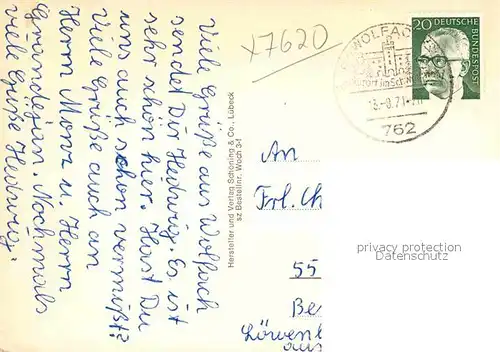 Viele Grüße aus Wolfach
sendet Dir Hedwig. Es ist
sehr schön hier. Hast Du
uns auch schon vermißt?
Viele Grüße auch an
Herrn Monz u. Herrn
Nochmals
viele Grüße Hedwig.
X7620
Hersteller und Verlag Schöning & Co., Lübeck
sz Bestellnr. Wach 34
WOLFAC
71
762
20 DEUTSCHE
BUNDESPOST
An
Frl. Ch
55
Be
Löwenb
aus
privacy protection
Datenschutz